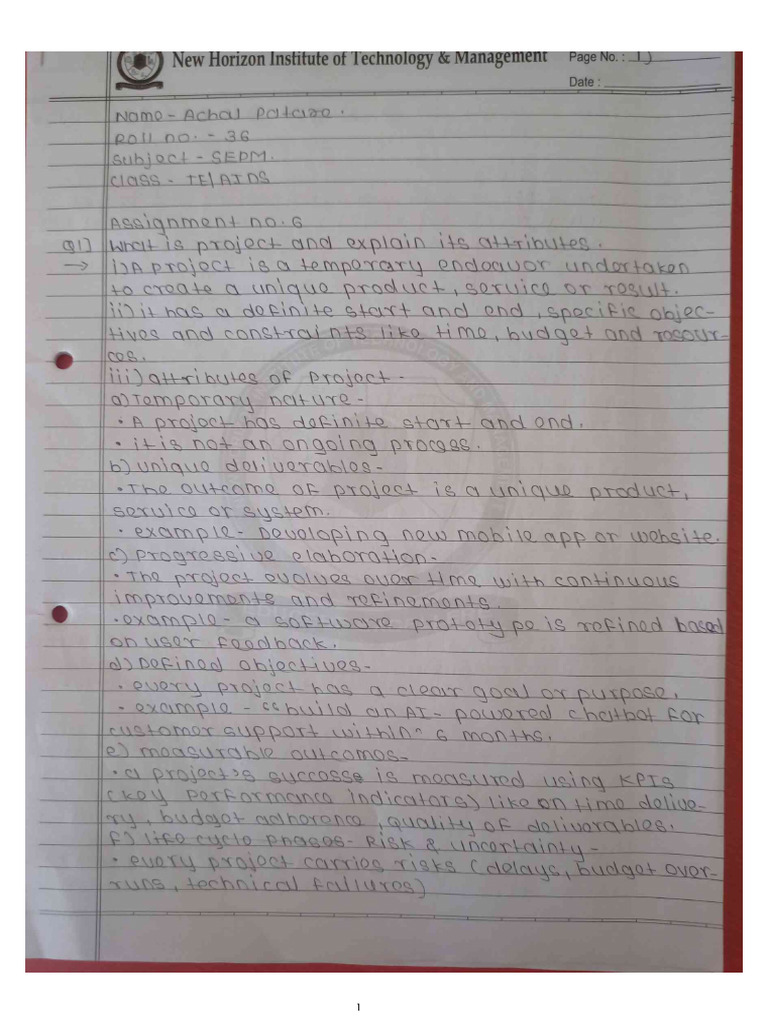 New Horizon Institute of Technology & Management Page No. : 1)
Date :
Name - Achal Patare.
Roll no. - 36
Subject - SEPM.
Class - TE/AIDS
Assignment no. 6
Q1) What is project and explain its attributes.
→ i) A project is a temporary endeavor undertaken
to create a unique product, service or result.
ii) it has a definite start and end, specific objec-
tives and constraints like time, budget and resour-
ces.
iii) attributes of project -
a) Temporary nature -
• A project has definite start and end.
• it is not an ongoing process.
b) unique deliverables -
• The outcome of project is a unique product,
service or system.
• example - Developing new mobile app or website.
c) progressive elaboration -
• The project evolves over time with continuous
improvements and refinements.
• example - a software prototype is refined based
on user feedback.
d) Defined objectives -
• every project has a clear goal or purpose.
• example - "build an AI - powered chatbot for
customer support within" 6 months.
e) measurable outcomes -
• a project's success is measured using KPIs
(key performance indicators) like on time delive-
ry, budget adherence, quality of deliverables.
f) life cycle phases - Risk & uncertainty -
• every project carries risks (delays, budget over-
runs, technical failures)
1